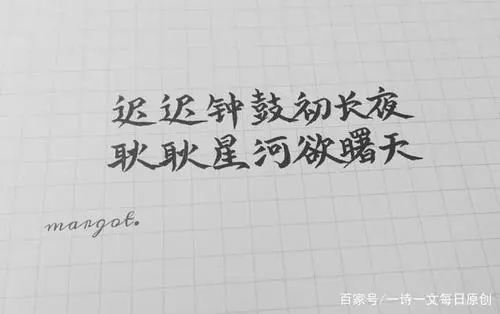 迟迟钟鼓初长夜
耿耿星河欲曙天
margot.
百家号/一诗一文每日原创